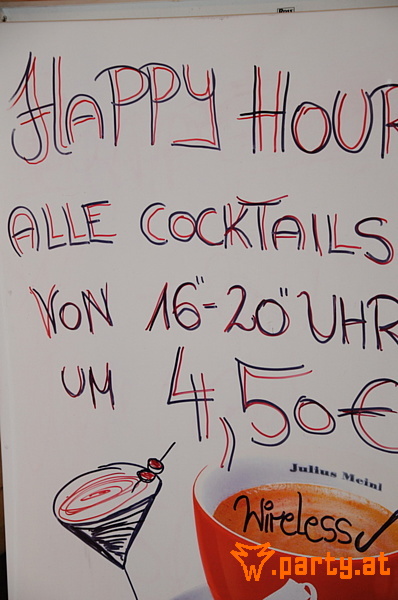 HAPPY HOUR
ALLE COCKTAILS
VON 16"-20" UHR
UM 4,50€
Julius Meinl
Wireless
.party.at